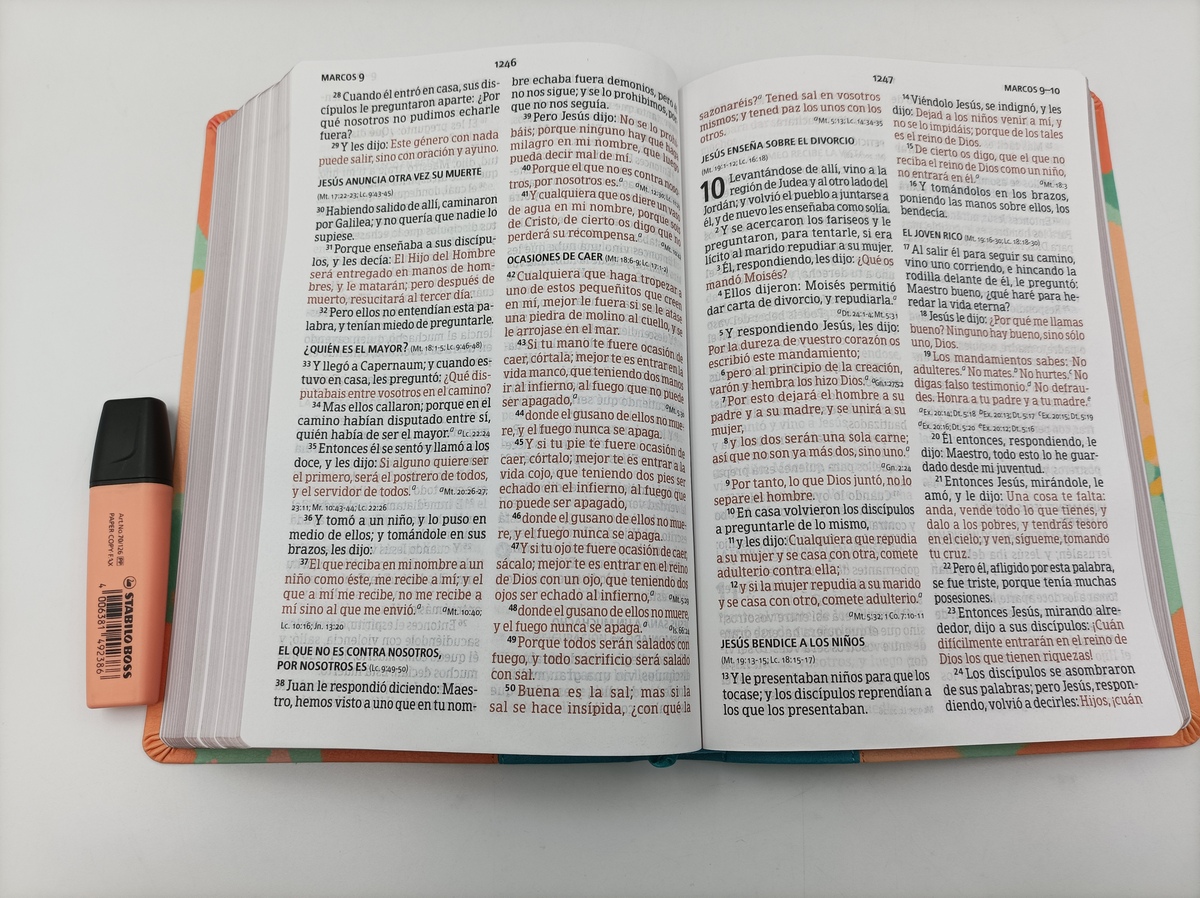 MARCOS 9
1246
28 Cuando él entró en casa, sus dis-
cípulos le preguntaron aparte: ¿Por
qué nosotros no pudimos echarle
fuera?
29 Y les dijo: Este género con nada
puede salir, sino con oración y ayuno.
JESÚS ANUNCIA OTRA VEZ SU MUERTE
(Mt. 17:22-23; Lc. 9:43-45)
30 Habiendo salido de allí, caminaron
por Galilea; y no quería que nadie lo
supiese.
31 Porque enseñaba a sus discípu-
los, y les decía: El Hijo del Hombre
será entregado en manos de hom-
bres, y le matarán; pero después de
muerto, resucitará al tercer día.
32 Pero ellos no entendían esta pa-
labra, y tenían miedo de preguntarle.
¿QUIÉN ES EL MAYOR? (Mt. 18:1-5; Lc. 9:46-48)
33 Y llegó a Capernaum; y cuando es-
tuvo en casa, les preguntó: ¿Qué dis-
putabais entre vosotros en el camino?
34 Mas ellos callaron; porque en el
camino habían disputado entre sí,
quién había de ser el mayor.a aLc. 22:24
35 Entonces él se sentó y llamó a los
doce, y les dijo: Si alguno quiere ser
el primero, será el postrero de todos,
y el servidor de todos.a aMt. 20:26-27;
23:11; Mr. 10:43-44; Lc. 22:26
36 Y tomó a un niño, y lo puso en
medio de ellos; y tomándole en sus
brazos, les dijo:
37 El que reciba en mi nombre a un
niño como este, me recibe a mí; y el
que a mí me recibe, no me recibe a
mí sino al que me envió.a aMt. 10:40;
Lc. 10:16; Jn. 13:20
EL QUE NO ES CONTRA NOSOTROS,
POR NOSOTROS ES (Lc. 9:49-50)
38 Juan le respondió diciendo: Maes-
tro, hemos visto a uno que en tu nom-
bre echaba fuera demonios, pero él
no nos sigue; y se lo prohibimos, por-
que no nos seguía.
39 Pero Jesús dijo: No se lo prohi-
báis; porque ninguno hay que haga
milagro en mi nombre, que luego
pueda decir mal de mí.
40 Porque el que no es contra noso-
tros, por nosotros es.a aMt. 12:30;
41 Y cualquiera que os diere un vaso
de agua en mi nombre, porque sois
de Cristo, de cierto os digo que no
perderá su recompensa.a
OCASIONES DE CAER (Mt. 18:6-9; Lc. 17:1-2)
42 Cualquiera que haga tropezar a
uno de estos pequeñitos que creen
en mí, mejor le fuera si se le atase
una piedra de molino al cuello, y se
le arrojase en el mar.
43 Si tu mano te fuere ocasión de
caer, córtala; mejor te es entrar en la
vida manco, que teniendo dos manos
ir al infierno, al fuego que no puede
ser apagado,a aMt. 5:30
44 donde el gusano de ellos no mue-
re, y el fuego nunca se apaga.
45 Y si tu pie te fuere ocasión de
caer, córtalo; mejor te es entrar a la
vida cojo, que teniendo dos pies ser
echado en el infierno, al fuego que
no puede ser apagado,
46 donde el gusano de ellos no mue-
re, y el fuego nunca se apaga.
47 Y si tu ojo te fuere ocasión de caer,
sácalo; mejor te es entrar en el reino
de Dios con un ojo, que teniendo dos
ojos ser echado al infierno,a aMt. 5:29
48 donde el gusano de ellos no muere,
y el fuego nunca se apaga.a aIs. 66:24
49 Porque todos serán salados con
fuego, y todo sacrificio será salado
con sal.
50 Buena es la sal; mas si la
sal se hace insípida, ¿con qué la
1247
MARCOS 9–10
sazonaréis?a Tened sal en vosotros
mismos; y tened paz los unos con los
otros. aMt. 5:13; Lc. 14:34-35
JESÚS ENSEÑA SOBRE EL DIVORCIO
(Mt. 19:1-12; Lc. 16:18)
10 Levantándose de allí, vino a la
región de Judea y al otro lado del
Jordán; y volvió el pueblo a juntarse a
él, y de nuevo les enseñaba como solía.
2 Y se acercaron los fariseos y le
preguntaron, para tentarle, si era
lícito al marido repudiar a su mujer.
3 Él, respondiendo, les dijo: ¿Qué os
mandó Moisés?
4 Ellos dijeron: Moisés permitió
dar carta de divorcio, y repudiarla.a
aDt. 24:1-4; Mt. 5:31
5 Y respondiendo Jesús, les dijo:
Por la dureza de vuestro corazón os
escribió este mandamiento;
6 pero al principio de la creación,
varón y hembra los hizo Dios.a aGn. 1:27; 5:2
7 Por esto dejará el hombre a su
padre y a su madre, y se unirá a su
mujer,
8 y los dos serán una sola carne;
así que no son ya más dos, sino uno.a
aGn. 2:24
9 Por tanto, lo que Dios juntó, no lo
separe el hombre.
10 En casa volvieron los discípulos
a preguntarle de lo mismo,
11 y les dijo: Cualquiera que repudia
a su mujer y se casa con otra, comete
adulterio contra ella;
12 y si la mujer repudia a su marido
y se casa con otro, comete adulterio.a
aMt. 5:32; 1 Co. 7:10-11
JESÚS BENDICE A LOS NIÑOS
(Mt. 19:13-15; Lc. 18:15-17)
13 Y le presentaban niños para que los
tocase; y los discípulos reprendían a
los que los presentaban.
14 Viéndolo Jesús, se indignó, y les
dijo: Dejad a los niños venir a mí, y
no se lo impidáis; porque de los tales
es el reino de Dios.
15 De cierto os digo, que el que no
reciba el reino de Dios como un niño,
no entrará en él.a aMt. 18:3
16 Y tomándolos en los brazos,
poniendo las manos sobre ellos, los
bendecía.
EL JOVEN RICO (Mt. 19:16-30; Lc. 18:18-30)
17 Al salir él para seguir su camino,
vino uno corriendo, e hincando la
rodilla delante de él, le preguntó:
Maestro bueno, ¿qué haré para he-
redar la vida eterna?
18 Jesús le dijo: ¿Por qué me llamas
bueno? Ninguno hay bueno, sino sólo
uno, Dios.
19 Los mandamientos sabes: No
adulteres.a No mates.b No hurtes.c No
digas falso testimonio.d No defrau-
des. Honra a tu padre y a tu madre.e
aEx. 20:14; Dt. 5:18 bEx. 20:13; Dt. 5:17 cEx. 20:15; Dt. 5:19
dEx. 20:16; Dt. 5:20 eEx. 20:12; Dt. 5:16
20 Él entonces, respondiendo, le
dijo: Maestro, todo esto lo he guar-
dado desde mi juventud.
21 Entonces Jesús, mirándole, le
amó, y le dijo: Una cosa te falta:
anda, vende todo lo que tienes, y
dalo a los pobres, y tendrás tesoro
en el cielo; y ven, sígueme, tomando
tu cruz.
22 Pero él, afligido por esta palabra,
se fue triste, porque tenía muchas
posesiones.
23 Entonces Jesús, mirando alre-
dedor, dijo a sus discípulos: ¡Cuán
difícilmente entrarán en el reino de
Dios los que tienen riquezas!
24 Los discípulos se asombraron
de sus palabras; pero Jesús, respon-
diendo, volvió a decirles: Hijos, ¡cuán
Art.No. 70/126
PAPER COPY FAX
STABILO BOSS
4 006381 492386